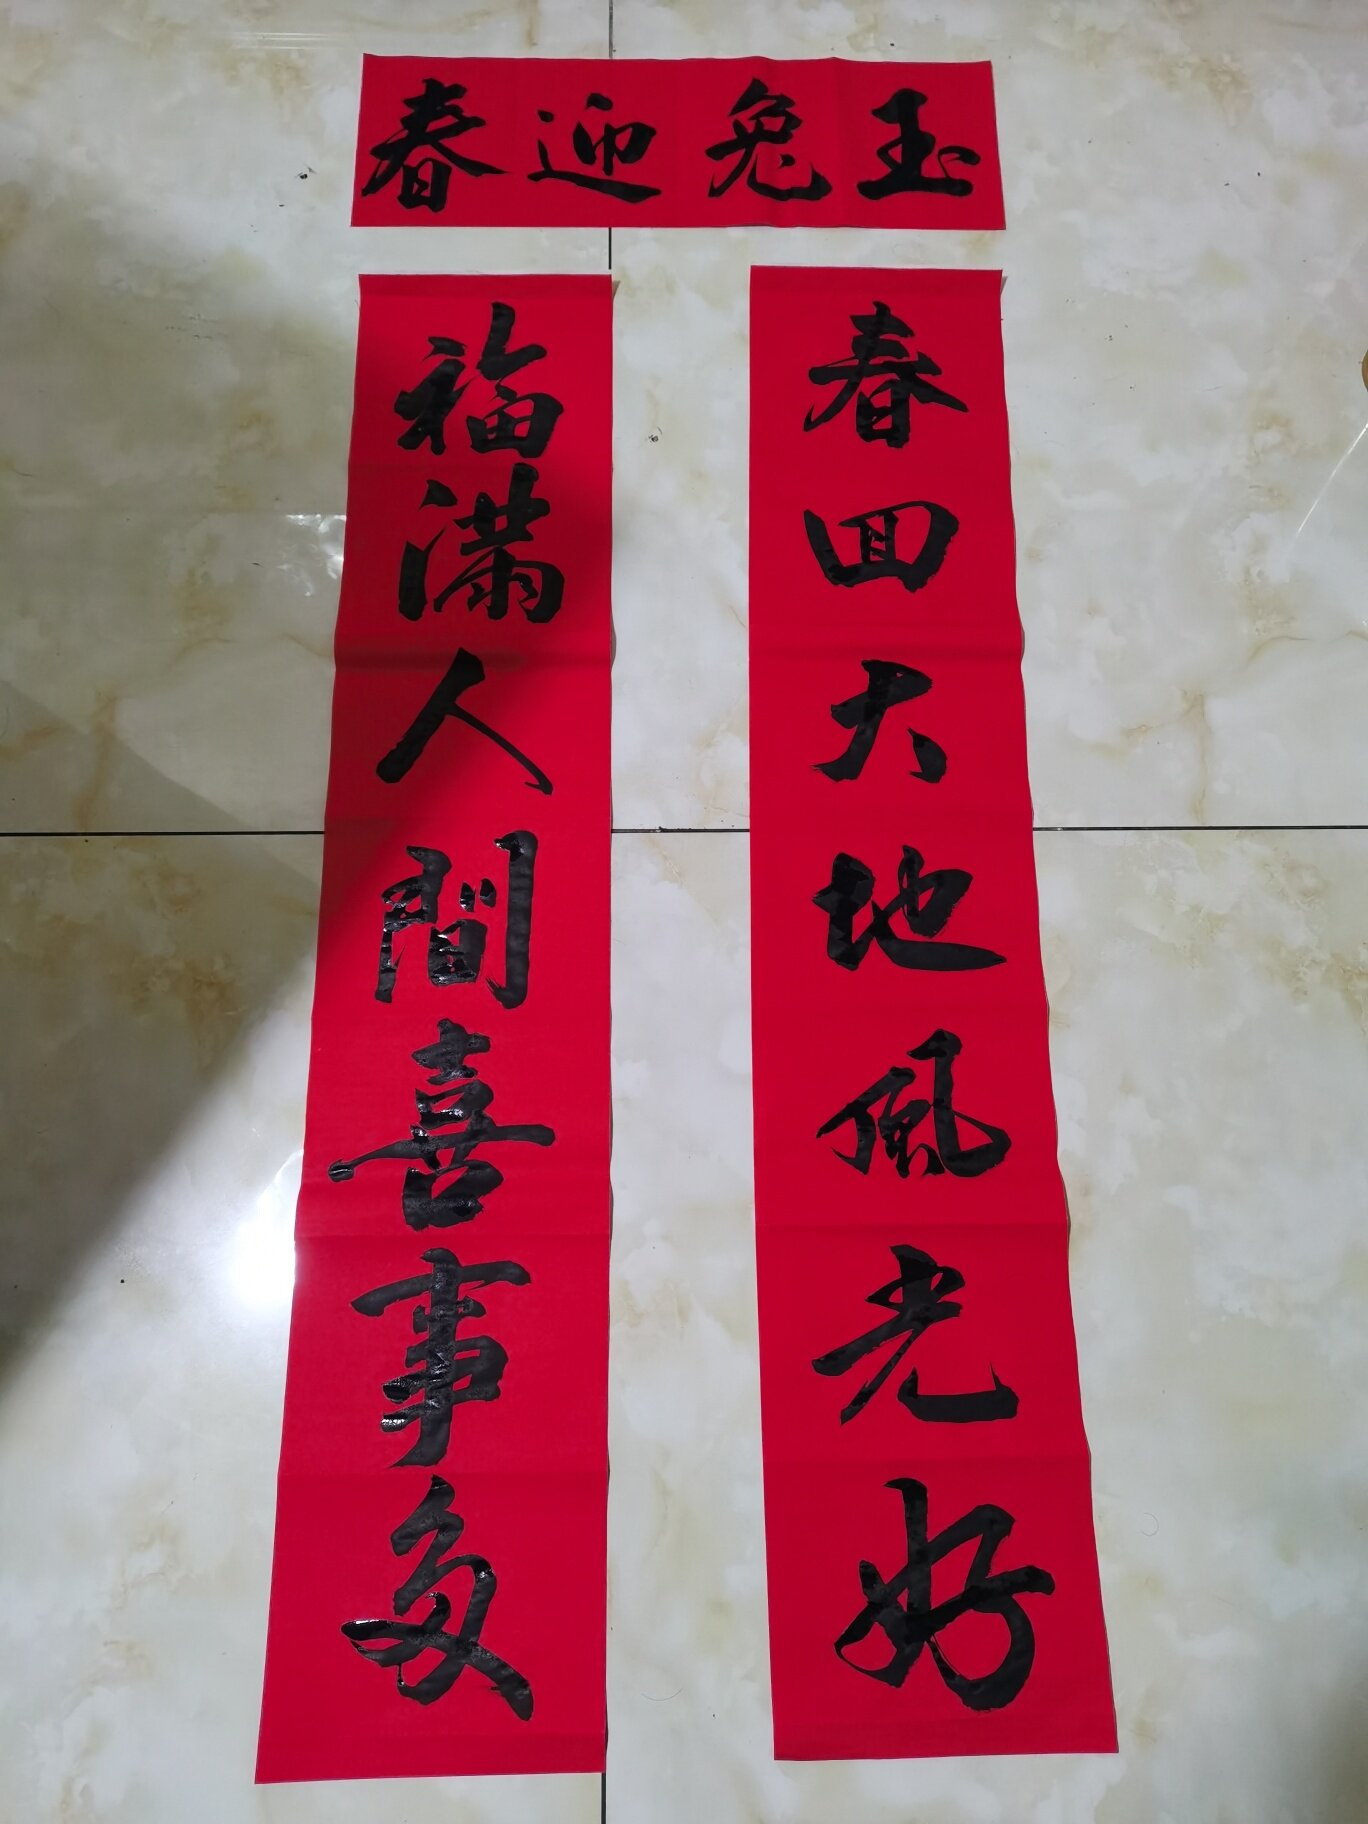 玉兔迎春
春回大地風光好
福滿人間喜事多